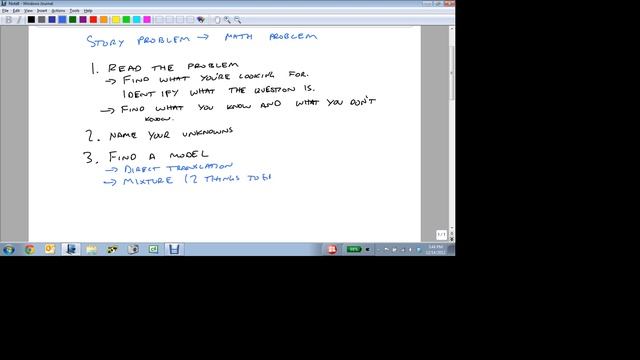 Note8 - Windows Journal
File Edit View Insert Actions Tools Help
STORY PROBLEM → MATH PROBLEM
1. READ THE PROBLEM
→ FIND WHAT YOU'RE LOOKING FOR.
IDENTIFY WHAT THE QUESTION IS.
→ FIND WHAT YOU KNOW AND WHAT YOU DON'T
KNOW.
2. NAME YOUR UNKNOWNS
3. FIND A MODEL
→ DIRECT TRANSLATION
→ MIXTURE (2 THINGS TO
1/1
98%
5:44 PM
12/14/2012